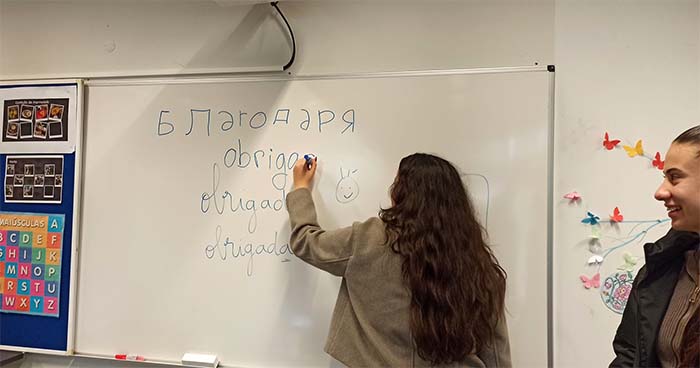 Благодаря
obrigad
obrigad
obrigada
MAIÚSCULAS A
B C D E F
G H I J K
L M N O P
Q R S T U
V W X Y Z